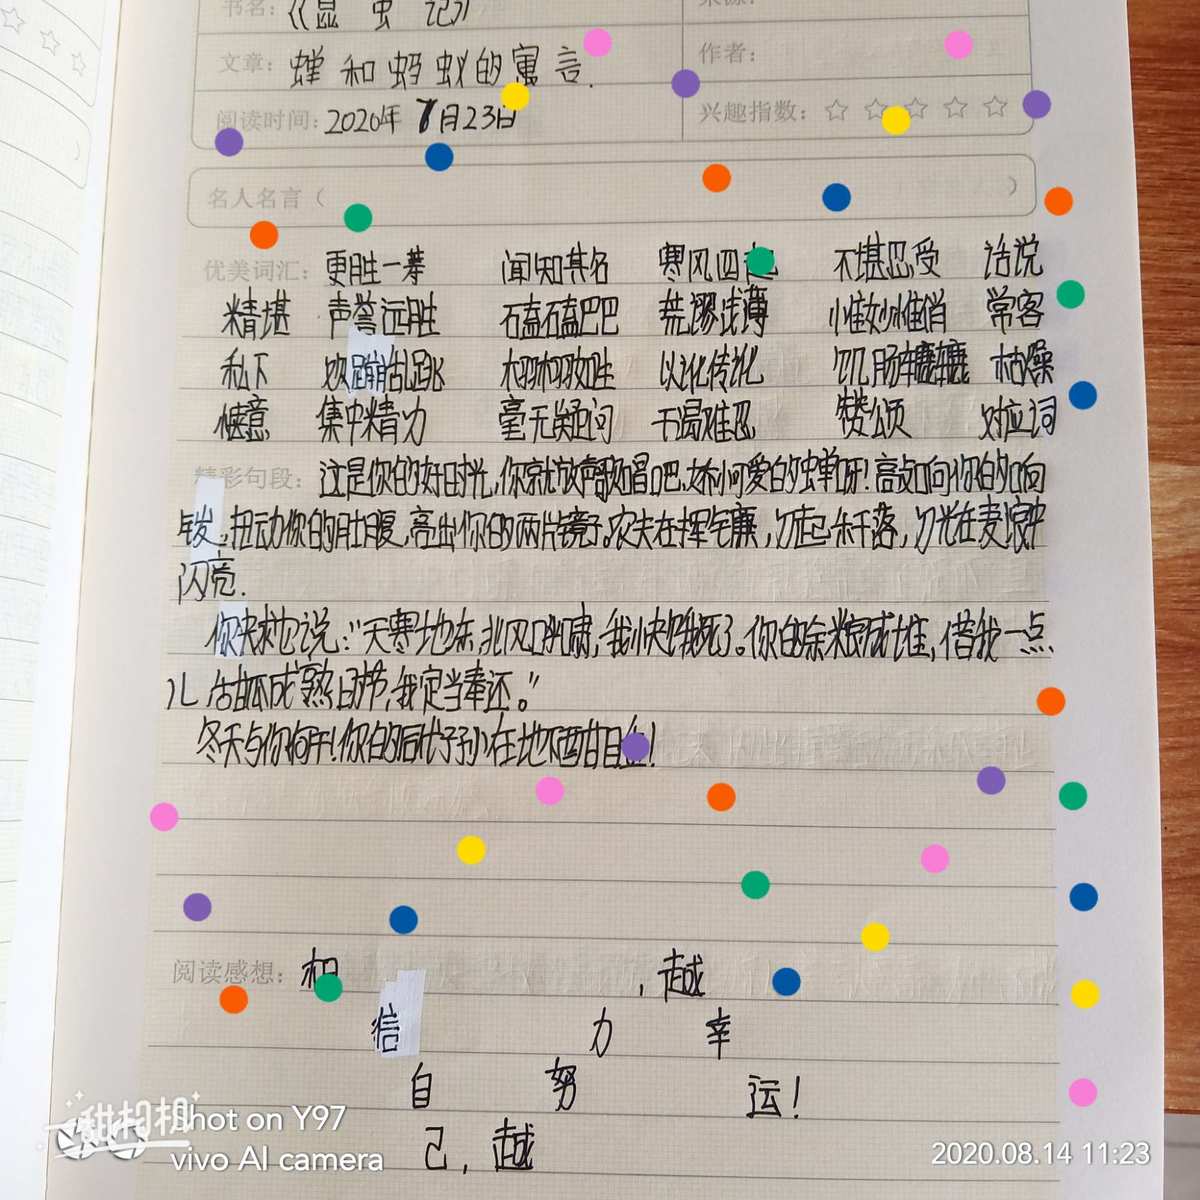 书名：《昆虫记》
文章：蝉和蚂蚁的寓言. 作者：
阅读时间：2020年 7月23日 兴趣指数：☆☆☆☆☆
名人名言（ ）
优美词汇： 更胜一筹 闻知其名 寒风四起 不堪忍受 话说
精堪 声誉远胜 磕磕巴巴 荒谬浅薄 惟妙惟俏 常客
私下 欢蹦乱跳 栩栩如生 以讹传讹 饥肠辘辘 枯燥
惬意 集中精力 毫无疑问 干渴难忍 赞颂 对应词
精彩句段： 这是你的好时光，你就放声歌唱吧，娇小可爱的蝉呀！高奴响你的响
钹，扭动你的肚腹，亮出你的两片镜子。农夫在挥笔廉，刀起禾千落，刀光在麦浪中
闪亮.
你夹求它说：“天寒地冻，北风呼啸，我快饿死了。你的余粮成堆，借我一点
儿 甜瓜成熟时节，我定当奉还。”
冬天与你何干！你的后代子孙在地下酣甘！
阅读感想： 相 ，越
信 力 幸
自 努 运！
己，越
甜相机
Shot on Y97
vivo AI camera
2020.08.14 11:23